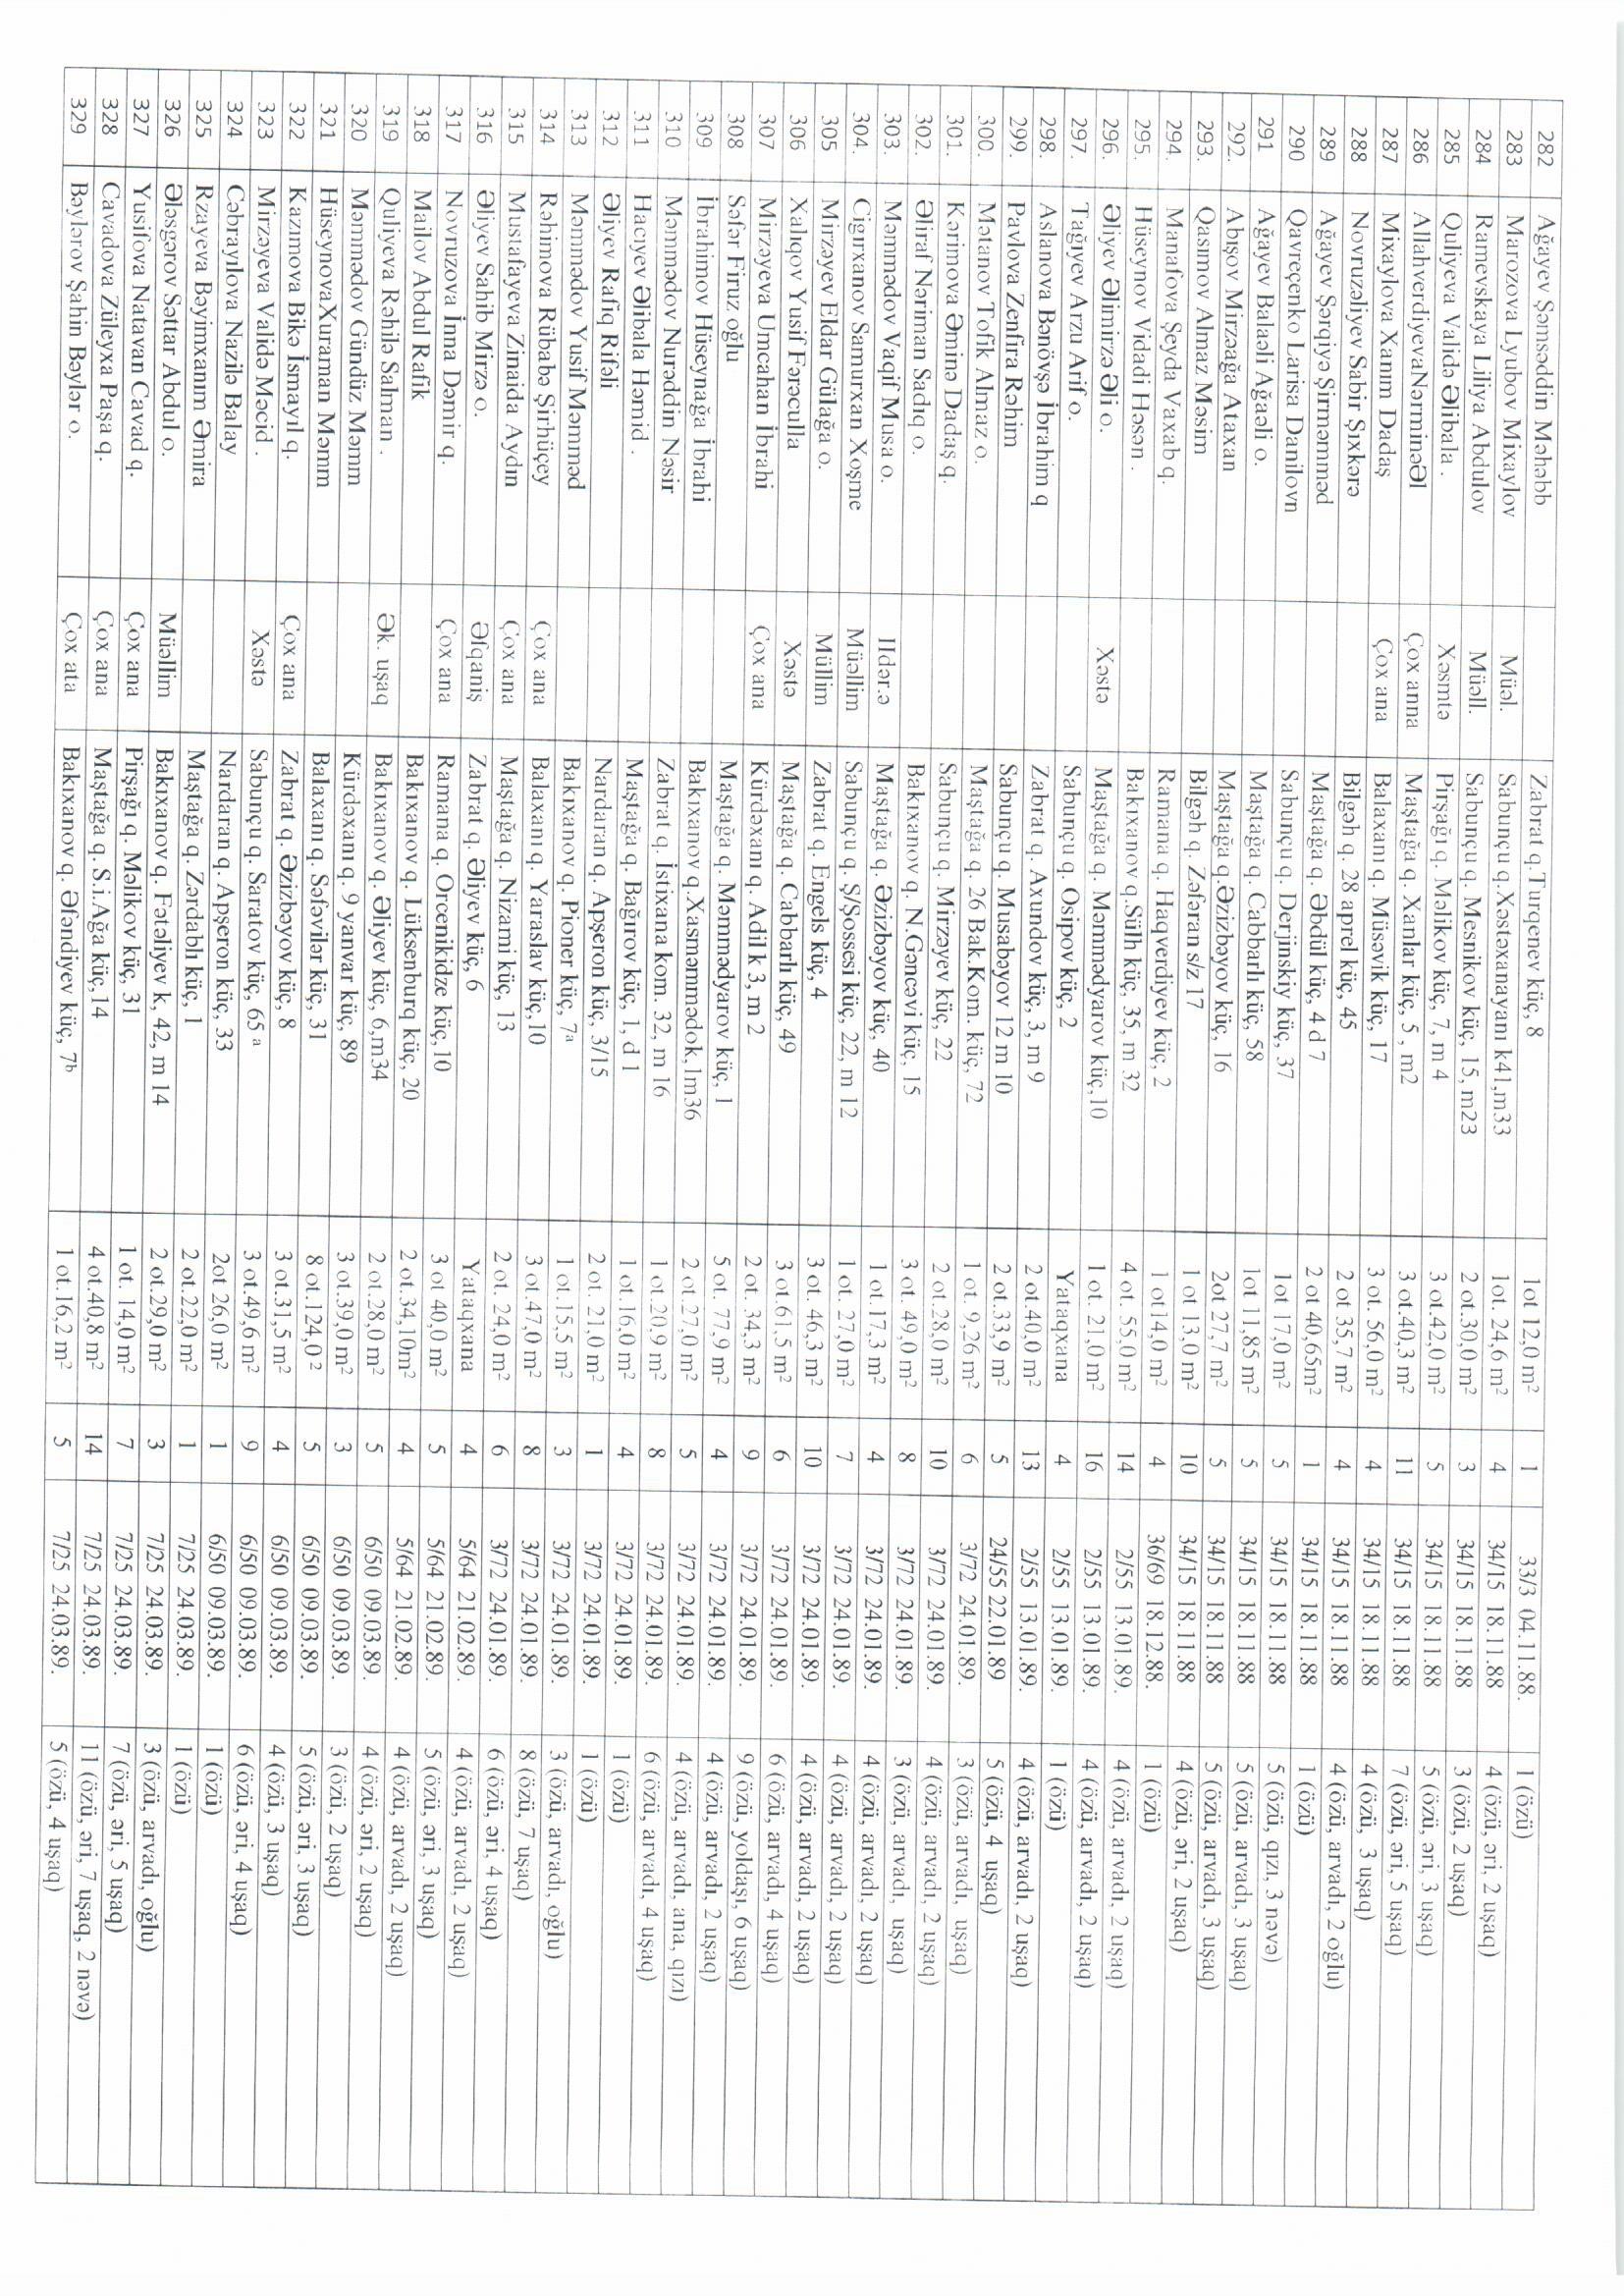 282 Ağayev Şəmsəddin Məhəbb Zabrat q.Turqenev küç, 8 1ot 12,0 m² 1 33/3 04.11.88. 1 (özü)
283 Marozova Lyubov Mixaylov Müəl. Sabunçu q.Xəstəxanayanı k41,m33 1ot. 24,6 m² 4 34/15 18.11.88 4 (özü, əri, 2 uşaq)
284 Ramevskaya Liliya Abdulov Müəll. Sabunçu q. Mesnikov küç, 15, m23 2 ot.30,0 m² 3 34/15 18.11.88 3 (özü, 2 uşaq)
285 Quliyeva Validə Əlibala . Xəsmtə Pirşağı q. Məlikov küç, 7, m 4 3 ot.42,0 m² 5. 34/15 18.11.88 5 (özü, əri, 3 uşaq)
286 AllahverdiyevaNərminəƏl Çox anna Maştağa q. Xanlar küç, 5 , m2 3 ot.40,3 m² 11 34/15 18.11.88 7 (özü, əri, 5 uşaq)
287 Mixaylova Xanım Dadaş Çox ana Balaxanı q. Müsəvik küç, 17 3 ot. 56,0 m² 4 34/15 18.11.88 4 (özü, 3 uşaq)
288 Novruzəliyev Sabir Şıxkərə Bilgəh q. 28 aprel küç, 45 2 ot 35,7 m² 4 34/15 18.11.88 4 (özü, arvadı, 2 oğlu)
289 Ağayev Şərqiyə Şirməmməd Maştağa q. Əbdül küç, 4 d 7 2 ot 40,65m² 1 34/15 18.11.88 1 (özü)
290 Qavreçenko Larisa Danilovn Sabunçu q. Derjinskiy küç, 37 1ot 17,0 m² 5 34/15 18.11.88 5 (özü, qızı, 3 nəvə)
291 Ağayev Balaəli Ağaəli o. Maştağa q. Cabbarlı küç, 58 1ot 11,85 m² 5 34/15 18.11.88 5 (özü, arvadı, 3 uşaq)
292. Abışov Mirzəağa Ataxan Maştağa q.Əzizbəyov küç, 16 2ot 27,7 m² 5 34/15 18.11.88 5 (özü, arvadı, 3 uşaq)
293. Qasımov Almaz Məsim Bilgəh q. Zəfəran s/z 17 1 ot 13,0 m² 10 34/15 18.11.88 4 (özü, əri, 2 uşaq)
294. Manafova Şeyda Vaxab q. Ramana q. Haqverdiyev küç, 2 1 ot14,0 m² 4 36/69 18.12.88. 1 (özü)
295. Hüseynov Vidadi Həsən . Bakıxanov q.Sülh küç, 35, m 32 4 ot. 55,0 m² 14 2/55 13.01.89. 4 (özü, arvadı, 2 uşaq)
296. Əliyev Əlimirzə Əli o. Xəstə Maştağa q. Məmmədyarov küç,10 1 ot. 21,0 m² 16 2/55 13.01.89. 4 (özü, arvadı, 2 uşaq)
297. Tağıyev Arzu Arif o. Sabunçu q. Osipov küç, 2 Yataqxana 4 2/55 13.01.89. 1 (özü)
298. Aslanova Bənövşə İbrahim q Zabrat q. Axundov küç, 3, m 9 2 ot.40,0 m² 13 2/55 13.01.89. 4 (özü, arvadı, 2 uşaq)
299. Pavlova Zenfira Rəhim Sabunçu q. Musabəyov 12 m 10 2 ot.33,9 m² 5 24/55 22.01.89 5 (özü, 4 uşaq)
300. Mətanov Tofik Almaz o. Maştağa q. 26 Bak.Kom. küç, 72 1 ot. 9,26 m² 6 3/72 24.01.89. 3 (özü, arvadı, uşaq)
301. Kərimova Əminə Dadaş q. Sabunçu q. Mirzəyev küç, 22 2 ot.28,0 m² 10 3/72 24.01.89. 4 (özü, arvadı, 2 uşaq)
302. Əliraf Nəriman Sadıq o. Bakıxanov q. N.Gəncəvi küç, 15 3 ot. 49,0 m² 8 3/72 24.01.89. 3 (özü, arvadı, uşaq)
303. Məmmədov Vaqif Musa o. IIdər.ə Maştağa q. Əzizbəyov küç, 40 1 ot.17,3 m² 4 3/72 24.01.89. 4 (özü, arvadı, 2 uşaq)
304. Cigırxanov Samurxan Xoşme Müəllim Sabunçu q. Ş/Şossesi küç, 22, m 12 1 ot. 27,0 m² 7 3/72 24.01.89. 4 (özü, arvadı, 2 uşaq)
305 Mirzəyev Eldar Gülağa o. Müllim Zabrat q. Engels küç, 4 3 ot. 46,3 m² 10 3/72 24.01.89. 4 (özü, arvadı, 2 uşaq)
306 Xalıqov Yusif Fərəculla Xəstə Maştağa q. Cabbarlı küç, 49 3 ot 61,5 m² 6 3/72 24.01.89. 6 (özü, arvadı, 4 uşaq)
307 Mirzəyeva Umcahan İbrahi Çox ana Kürdəxanı q. Adil k 3, m 2 2 ot. 34,3 m² 9 3/72 24.01.89. 9 (özü, yoldaşı, 6 uşaq)
308 Səfər Firuz oğlu Maştağa q. Məmmədyarov küç, 1 5 ot. 77,9 m² 4 3/72 24.01.89. 4 (özü, arvadı, 2 uşaq)
309 İbrahimov Hüseynağa İbrahi Bakıxanov q.Xasməmmədok,1m36 2 ot.27,0 m² 5 3/72 24.01.89. 4 (özü, arvadı, ana, qızı)
310 Məmmədov Nurəddin Nəsir Zabrat q. İstixana kom. 32, m 16 1 ot.20,9 m² 8 3/72 24.01.89. 6 (özü, arvadı, 4 uşaq)
311 Hacıyev Əlibala Həmid . Maştağa q. Bağırov küç, 1, d 1 1 ot.16,0 m² 4 3/72 24.01.89. 1 (özü)
312 Əliyev Rafiq Rifəli Nardaran q. Apşeron küç, 3/15 2 ot. 21,0 m² 1 3/72 24.01.89. 1 (özü)
313 Məmmədov Yusif Məmməd Bakıxanov q. Pioner küç, 7ª 1 ot.15,5 m² 3 3/72 24.01.89. 3 (özü, arvadı, oğlu)
314 Rəhimova Rübabə Şirhüçey Çox ana Balaxanı q. Yaraslav küç,10 3 ot.47,0 m² 8 3/72 24.01.89. 8 (özü, 7 uşaq)
315 Mustafayeva Zinaida Aydın Çox ana Maştağa q. Nizami küç, 13 2 ot. 24,0 m² 6 3/72 24.01.89. 6 (özü, əri, 4 uşaq)
316 Əliyev Sahib Mirzə o. Əfqaniş Zabrat q. Əliyev küç, 6 Yataqxana 4 5/64 21.02.89. 4 (özü, arvadı, 2 uşaq)
317 Novruzova İnna Dəmir q. Çox ana Ramana q. Orcenikidze küç,10 3 ot 40,0 m² 5 5/64 21.02.89. 5 (özü, əri, 3 uşaq)
318 Mailov Abdul Rafik Bakıxanov q. Lüksenburq küç, 20 2 ot.34,10m² 4 5/64 21.02.89. 4 (özü, arvadı, 2 uşaq)
319 Quliyeva Rəhilə Salman . Ək. uşaq Bakıxanov q. Əliyev küç, 6,m34 2 ot.28,0 m² 5 6/50 09.03.89. 4 (özü, əri, 2 uşaq)
320 Məmmədov Gündüz Məmm Kürdəxanı q. 9 yanvar küç, 89 3 ot.39,0 m² 3 6/50 09.03.89. 3 (özü, 2 uşaq)
321 HüseynovaXuraman Məmm Balaxanı q. Səfəvilər küç, 31 8 ot.124,0 ² 5 6/50 09.03.89. 5 (özü, əri, 3 uşaq)
322 Kazımova Bikə İsmayıl q. Çox ana Zabrat q. Əzizbəyov küç, 8 3 ot.31,5 m² 4 6/50 09.03.89. 4 (özü, 3 uşaq)
323 Mirzəyeva Validə Məcid . Xəstə Sabunçu q. Saratov küç, 65 ª 3 ot.49,6 m² 9 6/50 09.03.89. 6 (özü, əri, 4 uşaq)
324 Cəbrayılova Nazilə Balay Nardaran q. Apşeron küç, 33 2ot 26,0 m² 1 6/50 09.03.89. 1 (özü)
325 Rzayeva Bəyimxanım Əmira Maştağa q. Zərdablı küç, 1 2 ot.22,0 m² 1 7/25 24.03.89. 1 (özü)
326 Ələsgərov Səttar Abdul o. Müəllim Bakıxanov q. Fətəliyev k, 42, m 14 2 ot.29,0 m² 3 7/25 24.03.89. 3 (özü, arvadı, oğlu)
327 Yusifova Natavan Cavad q. Çox ana Pirşağı q. Məlikov küç, 31 1 ot. 14,0 m² 7 7/25 24.03.89. 7 (özü, əri, 5 uşaq)
328 Cavadova Züleyxa Paşa q. Çox ana Maştağa q. S.i.Ağa küç,14 4 ot.40,8 m² 14 7/25 24.03.89. 11 (özü, əri, 7 uşaq, 2 nəvə)
329 Bəylərov Şahin Bəylər o. Çox ata Bakıxanov q. Əfəndiyev küç, 7ᵇ 1 ot.16,2 m² 5 7/25 24.03.89. 5 (özü, 4 uşaq)